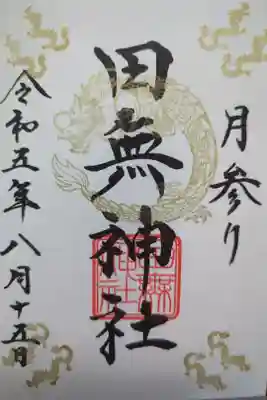 月参り
田無神社
令和五年八月十五日